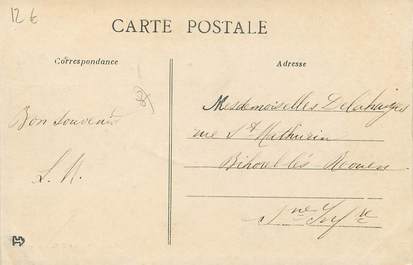 12 €
CARTE POSTALE
Correspondance
Adresse
Bon souvenir
L. N.
Mesdemoiselles Delahaizes
rue St Mathurin
Bihorel-lès-Rouen
Sne Infre